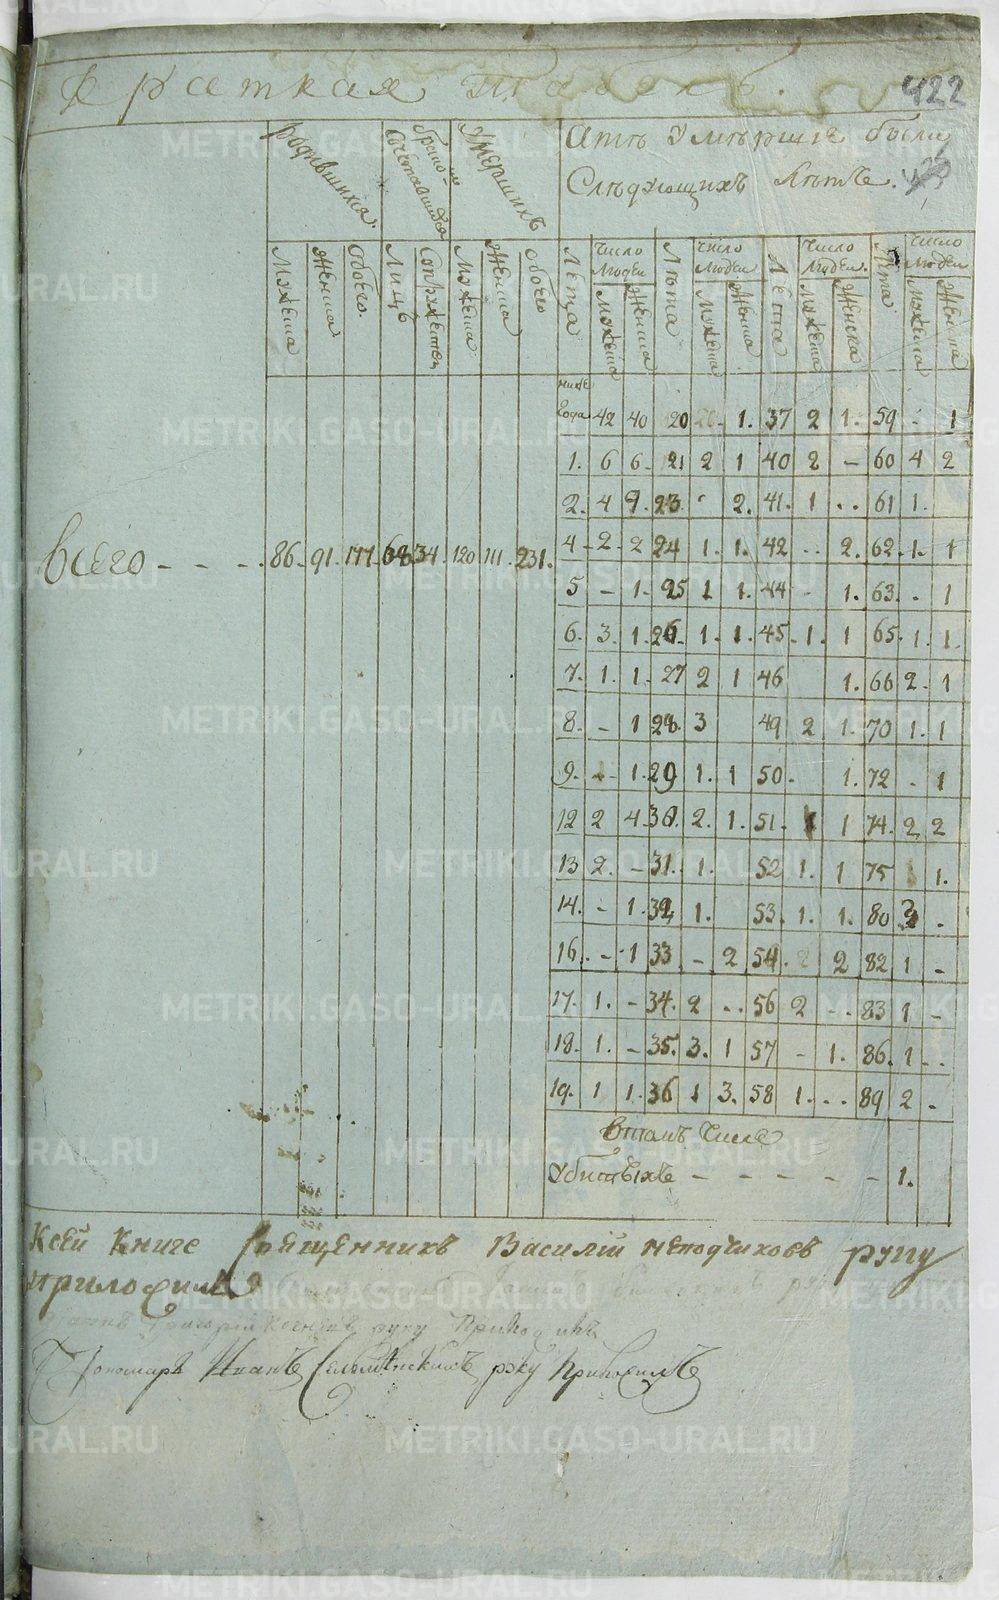 Краткая Табель.
422
Родившихся.
Бракосочетавшихся
Умершихъ
Атъ Умершiе были
Слѣдующихъ Лѣтъ.
Мужеска Женска Обоего. Лицъ Супружествъ Мужеска Женска Обоего
Лѣта Число Людей Лѣта Число Людей Лѣта Число Людей. Лѣта Число Людей
Мужеска Женска Мужеска Женска Мужеска Женска Мужеска Женска
ниже
года 42 40 20 20. 1. 37 2 1. 59 - 1
1. 6 6. 21 2 1 40 2 - 60 4 2
2. 4 9. 23 - 2. 41. 1 .. 61 1.
4 - 2 - 2 24 1. 1. 42 .. 2. 62. 1. 1
Всего - - - 86. 91. 177. 68 34. 120 111. 231.
5 - 1. 25 1 1. 44 - 1. 63. - 1
6. 3. 1. 26. 1. 1. 45. 1. 1 65. 1. 1.
7. 1. 1. 27 2 1 46 1. 66 2. 1
8. - 1 28. 3 49 2 1. 70 1. 1
9. - 1. 29 1. 1 50. 1. 72 - 1
12 2 4. 30. 2. 1. 51. 1 1 74. 2 2
13 2. - 31. 1. 52 1. 1 75 1.
14. - 1. 32 1. 53. 1. 1. 80 3 -
16. - 1 33 - 2 54. 2 2 82 1 -
17. 1. - 34. 2 .. 56 2 .. 83 1. -
18. 1. - 35. 3. 1 57 - 1. 86. 1 -
19. 1 1. 36 1 3. 58 1. .. 89 2 -
Втомъ Числѣ
Убитыхъ - - - - - - 1.
Ксей Книге Священникъ Василiй Неподчиховъ руку
приложилъ
Григорiй руку Приложилъ
Пономарь Иванъ Селянскихъ руку Приложилъ
METRIKI.GASO-URAL.RU